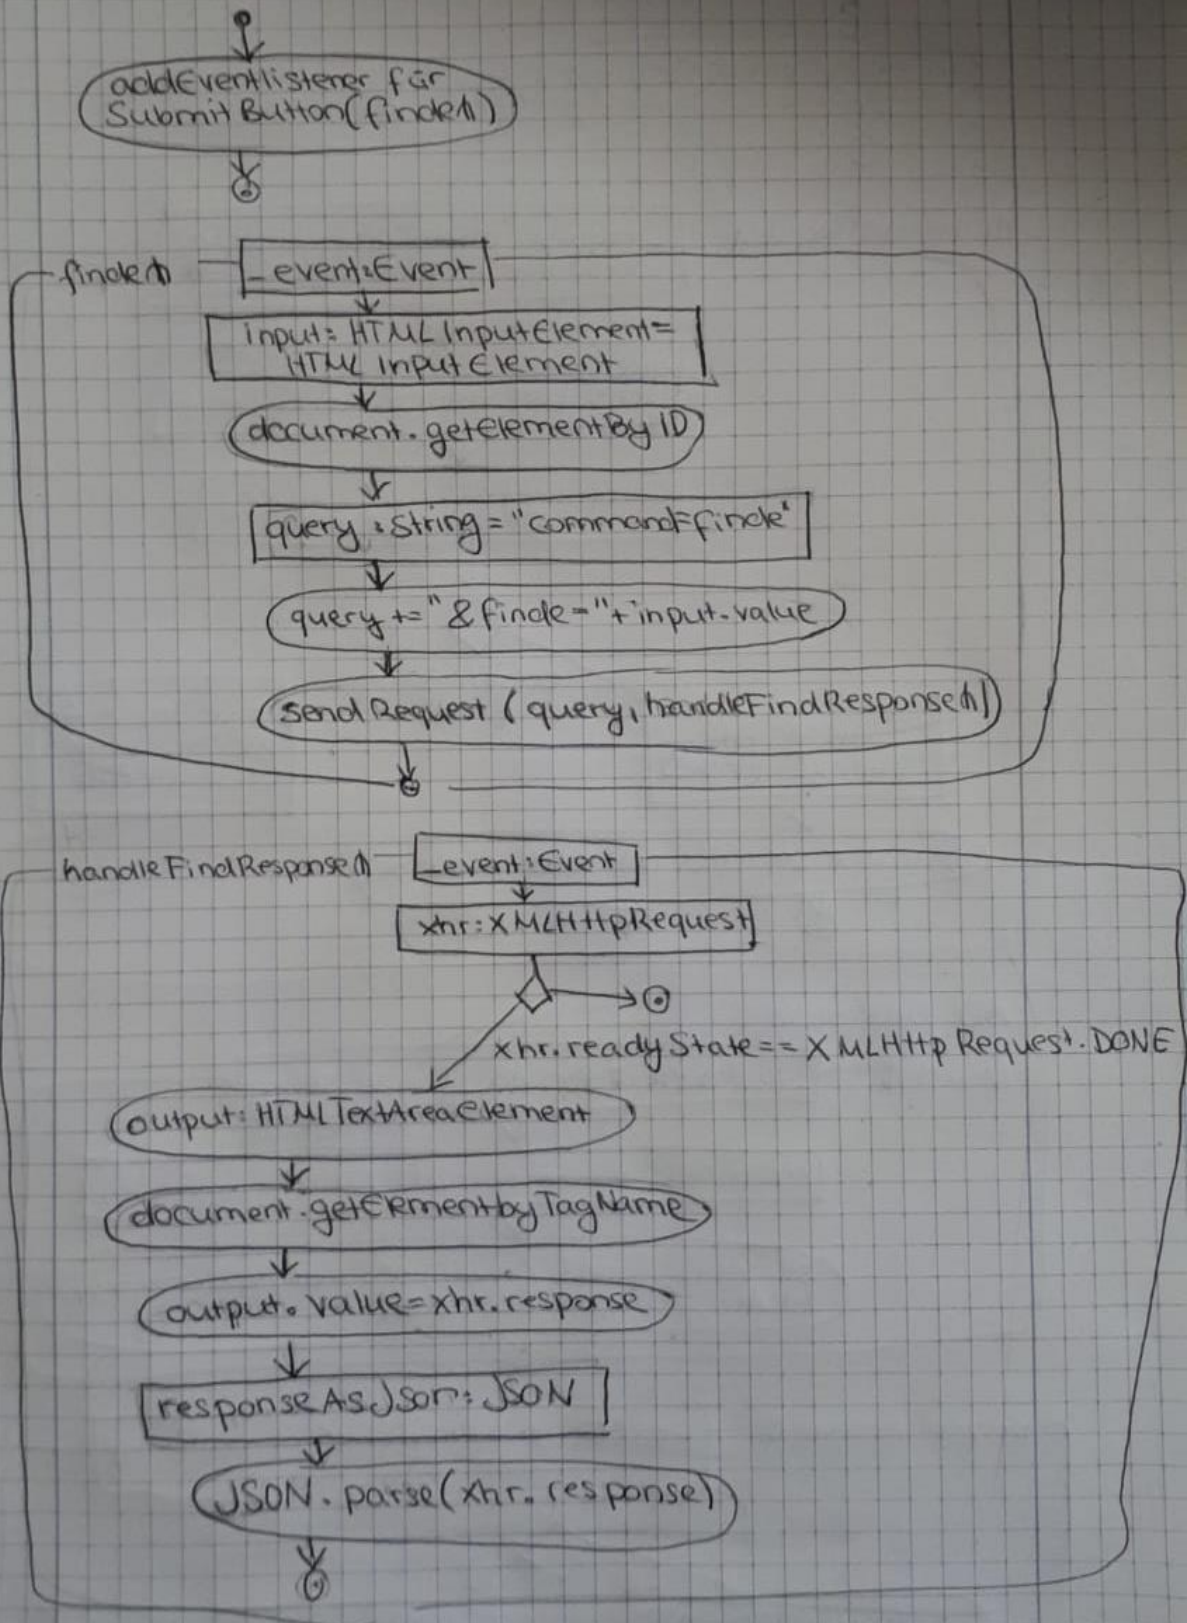 addEventlistener für
Submit Button(finden)
finden
_event:Event
input: HTML InputElement=
HTML InputElement
document.getElementBy ID
query : String = "command=finde"
query += "&finde="+input.value
sendRequest (query, handleFindResponsen)
handleFindResponsen
_event:Event
xhr:XMLHttpRequest
xhr.readyState == XMLHttpRequest.DONE
output: HTMLTextAreaElement
document.getElementbyTagName
output.value=xhr.response
responseAsJson: JSON
JSON.parse(xhr.response)